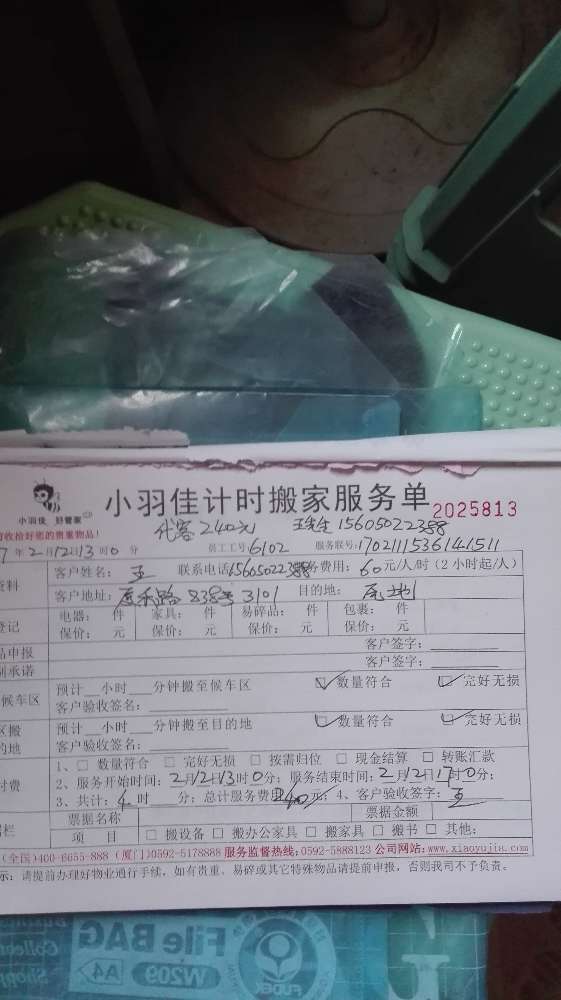 小羽佳 好管家
小羽佳计时搬家服务单 2025813
代客240元 王先生15605022388
收检好您的贵重物品!
7年2月12日13时0分 员工工号:6102 服务联号:1702111536141511
资料 客户姓名: 王 联系电话15605022388务费用: 60元/人/时(2小时起/人)
客户地址: 838号3101 目的地:
登记 电器: 件 家具: 件 易碎品: 件 包裹: 件
保价: 元 保价: 元 保价: 元 保价: 元
品申报 客户签字:
制承诺 客户签字:
候车区 预计__小时___分钟搬至候车区 ☑数量符合 ☑完好无损
客户验收签名:
区搬 预计__小时___分钟搬至目的地 ☑数量符合 ☑完好无损
的地 客户验收签名:
付费 1、□ 数量符合 □ 完好无损 □ 按需归位 □ 现金结算 □ 转账汇款
2、服务开始时间: 2月12日13时0分; 服务结束时间: 2月12日17时0分;
3、共计: 4时___分; 总计服务费用240元; 4、客户验收签字: 王
票据名称 票据金额
栏 项 目 □ 搬设备 □ 搬办公家具 □ 搬家具 □ 搬书 □ 其他:
(全国)400-6655-888 (厦门)0592-5178888 服务监督热线:0592-5888123 公司网站:www.xiaoyujia.com
示: 请提前办理好物业通行手续, 如有贵重、易碎或其它特殊物品请提前申报, 否则我司不予负责。
File BAG
A4 W209
FUDEK
Docum
Collec
Shopp